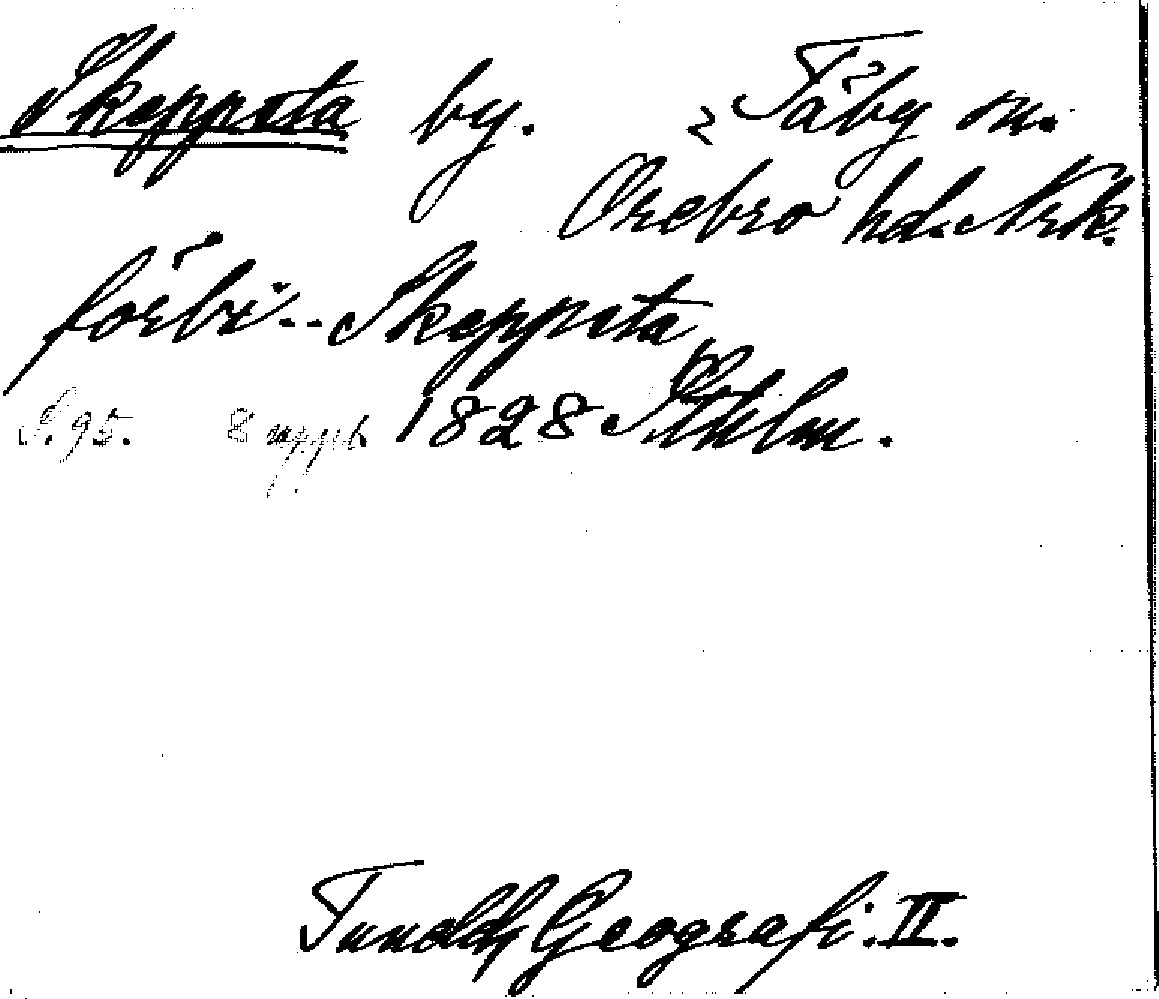 Skeppsta by. Täby sn.
Örebro hd. Nrk.
förbi -- Skeppsta
S. 95. 8 uppl. 1828 Sthlm.
Tunelds Geografi. II.